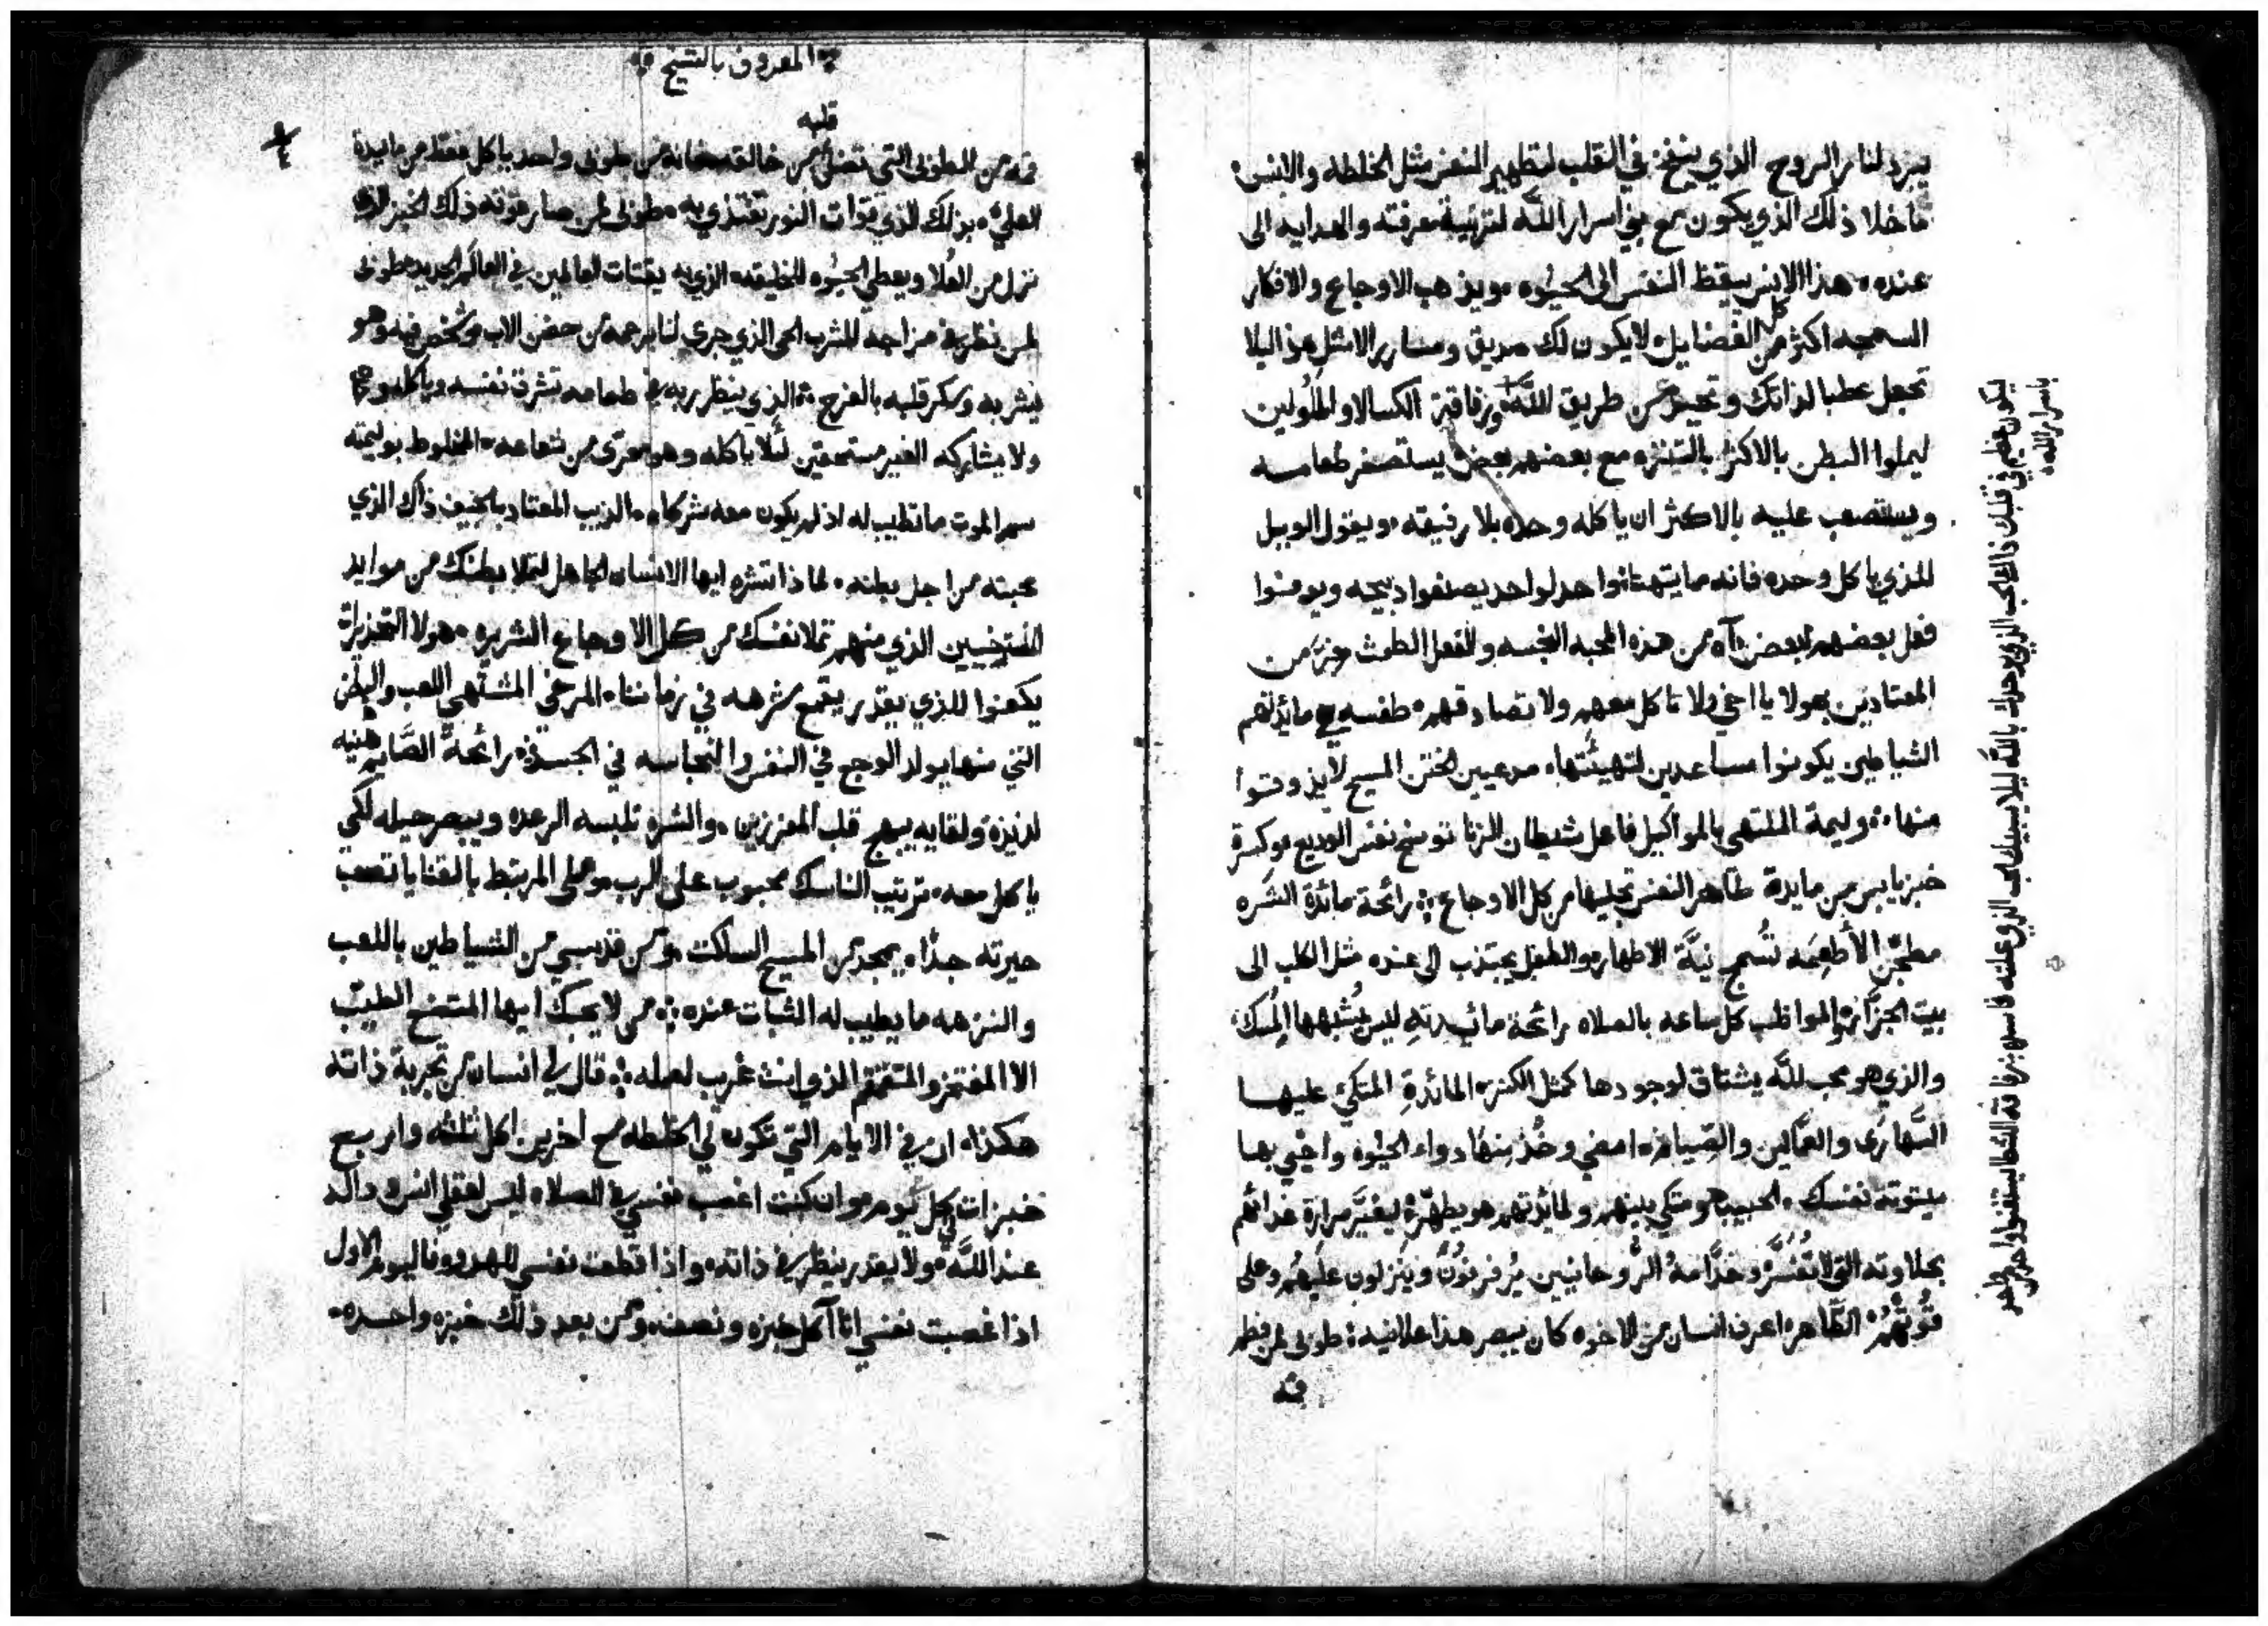 يبرد لنا نار الروح الذي ينفخ في القلب لتطهير النفس مثل الخلطه والانس
ما خلا ذلك الذي يكون مع بني اسرار الله لتربية معرفته والهدايه الى
عنده هذا الانس يقظ النفس الى الحيوه ويذهب الاوجاع والافكار
السمجه اكثر من كل الفضايل لا يكون لك صديق ومسارر الا مثل هذا ليلا
تجعل عطبا لذاتك وتحيد من طريق الله ورفاقة الكسالا والملولين
ليملوا البطن بالاكثر بالتنزه مع بعضهم بعض يستصغر طعامه
ويستصعب عليه بالاكثر ان ياكله وحده بلا رفيقه ويقول الويل
للذي ياكل وحده فانه ما يتهنا
فعل بعضهم لبعض آه من هذه المحبه النجسه والفعل الطمث
المعتادين بهولا يا اخي ولا تاكل معهم ولا تصادقهم طفسه هي مائدتهم
الشياطين يكونوا مساعدين لتهيئتها مدعيين الختن المسيح لا يذوقوا
منها وليمة الملتهى بالمواكيل فاعل شيطان الزنا توسخ نفس الوديع وكسرة
خبز يابس من مايدة طاهر النفس تجليها من كل الاوجاع رائحة مائدة الشره
الأطعمه تسمج نية الاطهار والطفل يجتذب الى عنده مثل الكلب الى
بيت الجزاره المواظب كل ساعه بالصلاه رائحة مائيدته ليس يشبهها المسك
والذي هو محب لله يشتاق لوجودها كمثل الكنز المائدة المتكي عليها
السهارى والعمالين والصيام امضي وخذ منها دواء الحيوه واحيي بها
ميتوتة نفسك الحبيب هو متكي بينهم ولمائدتهم هو يطهر ليغير مرارة غذائهم
بحلاوته التي لا تفسر وخدامه الروحانيين يرفرفون وينزلون عليهم وعلى
قوتهم الطاهر اعرف انسان من الاخوه كان يبصر هذا علانيه طوبى لمن فطم
فمه
ليكون عظيم في قلبك ذاك الحب الذي يوحدك بالله ليلا يسبيك الحب الذي علته
باسرار الله
المعروف بالشيخ
قلبه
فمه من الملوذ التي تفصل من خالقه طوبى واحد ياكل فقط من مايدة
العلي بذلك الذي قوات النور تغتذي به طوبى لمن صار قوته ذلك الخبز الذي
نزل من العلا ويعطي الحيوه للخليقه الذي به يقتات العالمين في العالم الجديد طوبى
لمن نظر في مزاجه للشرب الحي الذي جرى لنا برحمه من حضن الاب وشخص فيه وهو
يشربه وسكر قلبه بالفرح الذي ينظر ربه في طعامه تشرق نفسه وياكله
ولا يشاركه الغير مستحقين لئلا ياكله وهو معرى من شعاعه المخلوط بوليمته
سم الموت ما تطيب له اذ لم يكون معه شركاه الذيب المعتاد بالجيف ذاك الذي
محبته من اجل بطنه لماذا تشره ايها الانسان الجاهل لتملا بطنك من موايد
المسترخيين الذي منهم تملا نفسك من كل الاوجاع الشريره هولا التحذيرات
يكفوا للذي يقدر يقمع شرهه في زماننا المرخي المشتهي اللعب والبطن
التي منها يولد الوجع في النفس والنجاسه في الجسد رائحة الصايم هنيه
لذيذة ولقايه يبهج قلب المفرزين والشره تلبسه الرعده ويبصر حيله لكي
ياكل معه ترتيب الناسك محبوب على الرب وعلى المرتبط بالقنايا تصعب
حيرته جدا يمجد من المسيح الساكت ومن قديسي من الشياطين باللعب
والنزهه ما يطيب له الثبات عنده من لا يحبك ايها المتضع الطيب
الا المفتخر والمتقمقم الذي انت غريب لعمله قال لي انسان من تجربة ذاته
هكذا ان في الايام التي تكون لي الخلطه مع اخرين اكل ثلثه واربع
خبزات كل يوم وان كنت اغصب نفسي في الصلاه ليس لعقلي انس ودالة
عند الله ولا يقدر ينظر في ذاته واذا قطعت نفسي للهدوو فاليوم الاول
اذا غصبت نفسي انا آكل خبزه ونصف ومن بعد ذلك خبزه واحده